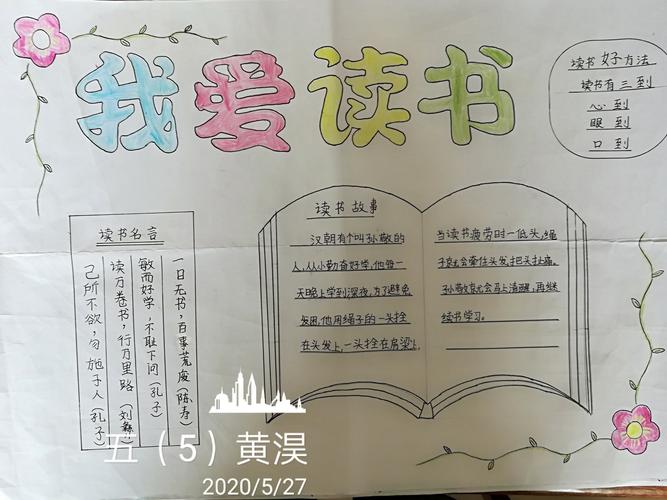 我爱读书
读书好方法
读书有三到
心到
眼到
口到
读书名言
一日无书，百事荒废（陈寿）
敏而好学，不耻下问（孔子）
读万卷书，行万里路（刘彝）
己所不欲，勿施于人（孔子）
读书故事
汉朝有个叫孙敬的
人，从小勤奋好学，他每一
天晚上学到深夜，为了避免
发困，他用绳子的一头拴
在头发上，一头拴在房梁上，
当读书疲劳时一低头，绳
子就会牵住头发把头扯痛。
孙敬就会马上清醒，再继
续书学习。
五（5）黄淏
2020/5/27